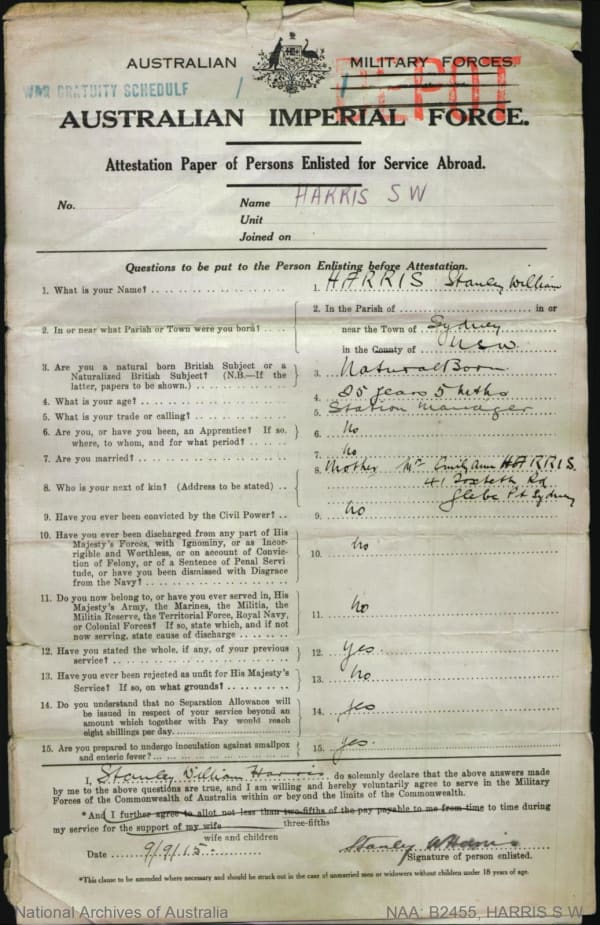 AUSTRALIAN MILITARY FORCES.
WAR GRATUITY SCHEDULE
DEPOT
AUSTRALIAN IMPERIAL FORCE.
Attestation Paper of Persons Enlisted for Service Abroad.
No. Name HARRIS S W
Unit
Joined on
Questions to be put to the Person Enlisting before Attestation.
1. What is your Name? 1. HARRIS Stanley William
2. In or near what Parish or Town were you born? 2. In the Parish of in or
near the Town of Sydney
in the County of NSW
3. Are you a natural born British Subject or a
Naturalized British Subject? (N.B.—If the
latter, papers to be shown.) 3. Natural Born
4. What is your age? 4. 25 years 5 mths
5. What is your trade or calling? 5. Station Manager
6. Are you, or have you been, an Apprentice? If so.
where, to whom, and for what period? 6. No
7. Are you married? 7. No
8. Who is your next of kin? (Address to be stated) 8. Mother Mrs Emily Ann HARRIS.
41 Toxteth Rd
Glebe Pt Sydney
9. Have you ever been convicted by the Civil Power? 9. No
10. Have you ever been discharged from any part of His
Majesty's Forces, with Ignominy, or as Incor-
rigible and Worthless, or on account of Convic-
tion of Felony, or of a Sentence of Penal Servi
tude, or have you been dismissed with Disgrace
from the Navy? 10. No
11. Do you now belong to, or have you ever served in, His
Majesty's Army, the Marines, the Militia, the
Militia Reserve, the Territorial Force, Royal Navy,
or Colonial Forces? If so, state which, and if not
now serving, state cause of discharge 11. No
12. Have you stated the whole, if any, of your previous
service? 12. Yes.
13. Have you ever been rejected as unfit for His Majesty's
Service? If so, on what grounds? 13. No
14. Do you understand that no Separation Allowance will
be issued in respect of your service beyond an
amount which together with Pay would reach
eight shillings per day. 14. Yes
15. Are you prepared to undergo inoculation against smallpox
and enteric fever? 15. Yes.
I, Stanley William Harris do solemnly declare that the above answers made
by me to the above questions are true, and I am willing and hereby voluntarily agree to serve in the Military
Forces of the Commonwealth of Australia within or beyond the limits of the Commonwealth.
*And I further agree to allot not less than two-fifths of the pay payable to me from time to time during
three-fifths
my service for the support of my wife
wife and children
Date 9/9/15. Stanley W Harris
Signature of person enlisted.
*This clause to be amended where necessary and should be struck out in the case of unmarried men or widowers without children under 18 years of age.
National Archives of Australia NAA: B2455, HARRIS S W